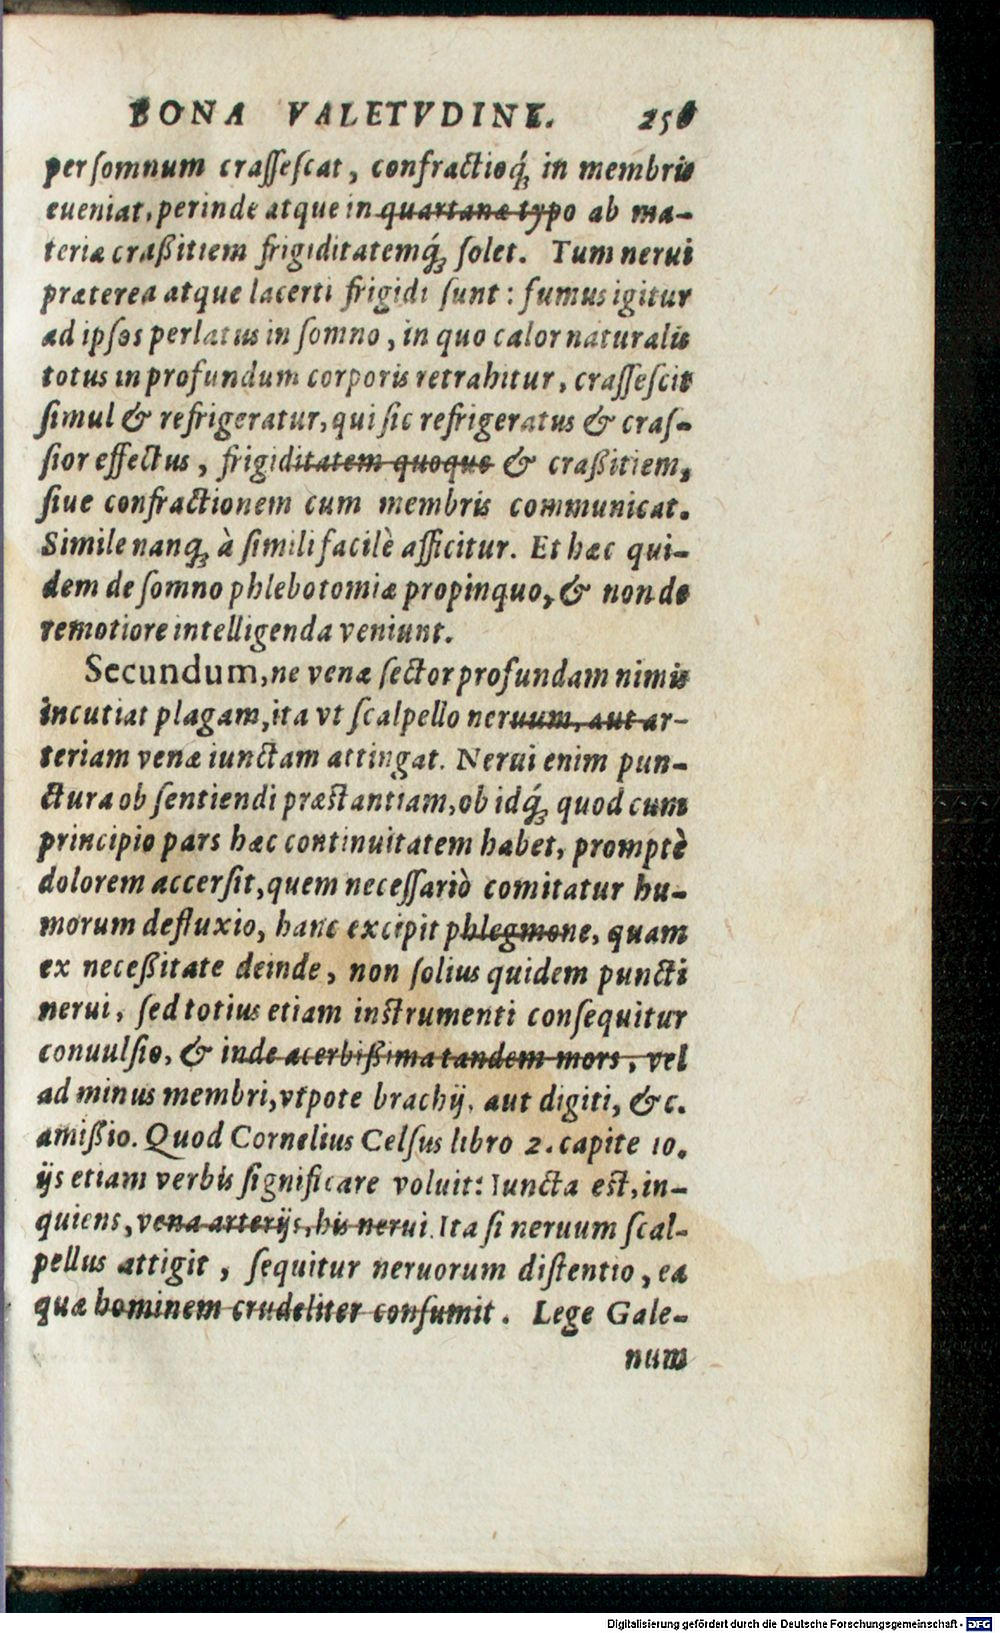 BONA VALETVDINE. 256
per somnum crassescat, confractioq́; in membris
eueniat, perinde atque in quartanæ typo ab ma-
teriæ craßitiem frigiditatemq́; solet. Tum nerui
præterea atque lacerti frigidi sunt: fumus igitur
ad ipsos perlatus in somno, in quo calor naturalis
totus in profundum corporis retrahitur, crassescit
simul & refrigeratur, qui sic refrigeratus & cras-
sior effectus, frigiditatem quoque & craßitiem,
siue confractionem cum membris communicat.
Simile nanq; à simili facilè afficitur. Et hæc qui-
dem de somno phlebotomiæ propinquo, & non de
remotiore intelligenda veniunt.
Secundum, ne venæ sector profundam nimis
incutiat plagam, ita vt scalpello neruum, aut ar-
teriam venæ iunctam attingat. Nerui enim pun-
ctura ob sentiendi præstantiam, ob idq́; quod cum
principio pars hæc continuitatem habet, promptè
dolorem accersit, quem necessariò comitatur hu-
morum defluxio, hanc excipit phlegmone, quam
ex neceßitate deinde, non solius quidem puncti
nerui, sed totius etiam instrumenti consequitur
conuulsio, & inde acerbißima tandem mors, vel
ad minus membri, vtpote brachij, aut digiti, &c.
amißio. Quod Cornelius Celsus libro 2. capite 10.
ijs etiam verbis significare voluit: Iuncta est, in-
quiens, vena arterijs, his nerui. Ita si neruum scal-
pellus attigit, sequitur neruorum distentio, ea
quæ hominem crudeliter consumit. Lege Gale-
num
Digitalisierung gefördert durch die Deutsche Forschungsgemeinschaft - DFG